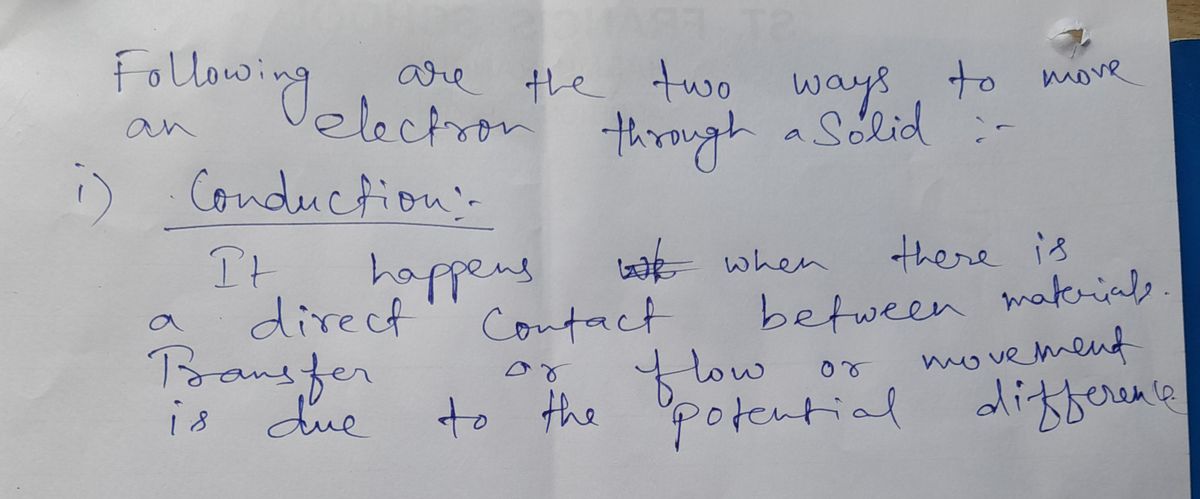 Following are the two ways to move
an electron through a Solid :-
i) Conduction:-
It happens when there is
a direct Contact between materials.
Transfer or flow or movement
is due to the potential difference